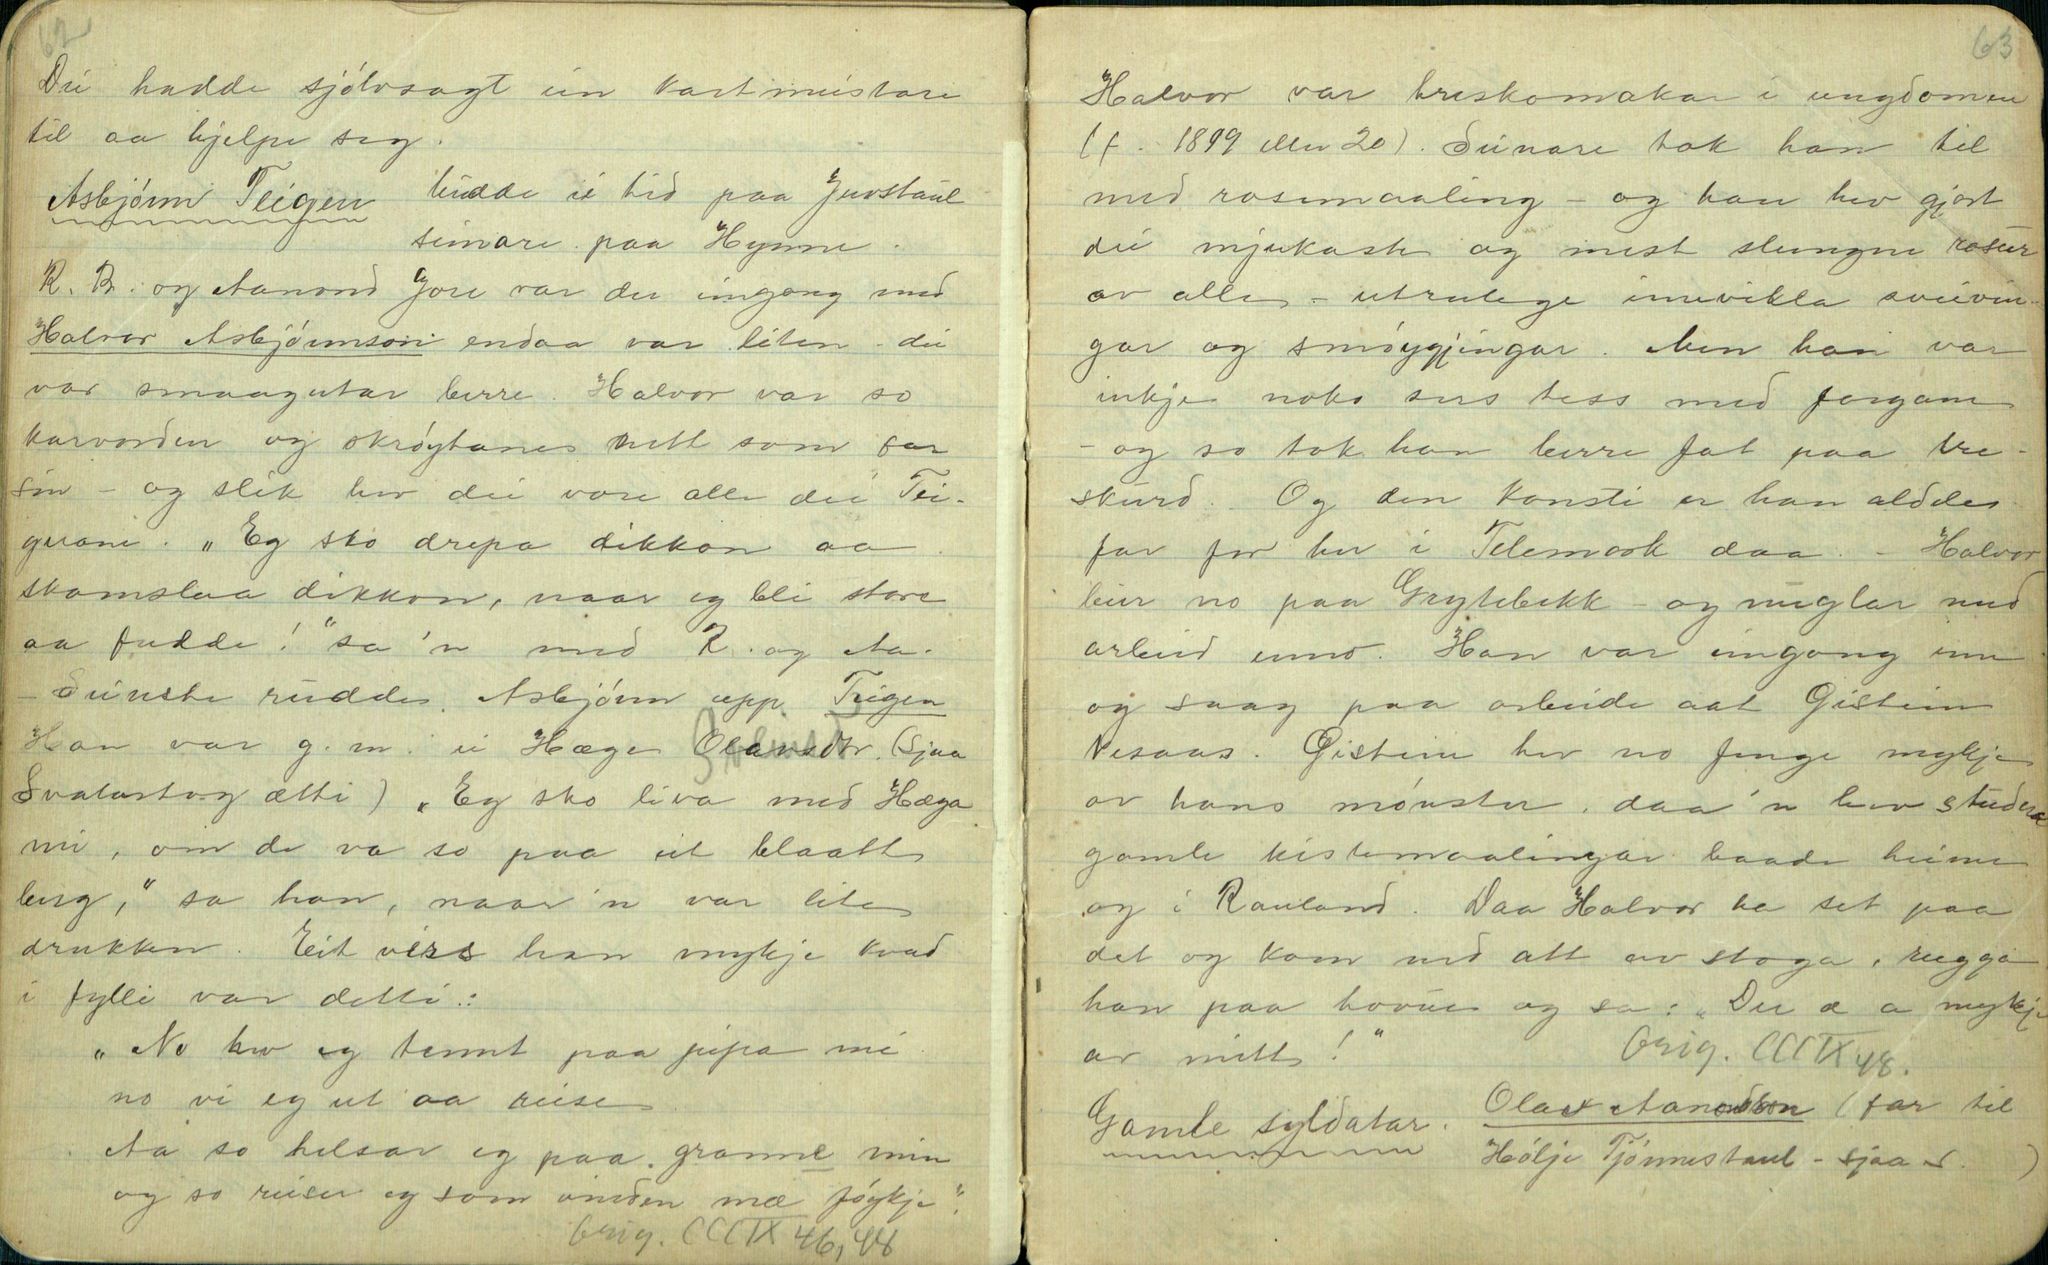 62
Dei hadde sjølvsagt ein kartmeistare
til aa hjelpe seg.
Asbjørn Teigen budde ei tid paa Juvstaul
seinare paa Hynne.
R. R. og Aanond Gjore var der eingong med
Halvor Asbjørnson endaa var liten - dei
var smaagutar berre. Halvor var so
karvorden og skrøytane reitt som far
sin - og slik hev dei vore alle dei Tei-
gerane. „Eg sko drepa dikkon aa
skamslaa dikkon, naar eg bli store
aa fudde!" sa 'n med R. og Aa.
- Seinste rudde Asbjørn upp Teigen
Han var g. m. ei Hæge Olavsdtr. (Sjaa
Svalastog ætti) „Eg sko liva med Hæga
mi, om de va so paa eit blaatt
berg," sa han, naar 'n var lite
drukken. Eit vers han mykje kvad
i fylli var detti:
„No hev eg tennt paa pipa mi
no vi eg ut aa reise
Aa so helsar eg paa granne min
og so reiser eg som vinden mæ føykje".
Orig. CCCIX 46, 48
63
Halvor var treskomakar i ungdomen
(f. 1819 eller 20). Seinare tok han til
med rosemaaling - og han hev gjort
dei mjukaste og mest slungne rosur
av alle - utrulege innvikla sveivin-
gar og smøygjingar. Men han var
inkje noko sers tess med fargane
- og so tok han berre fat paa tre-
skurd. Og den konsti er han alddes
far for her i Telemark daa. - Halvor
bur no paa Grytebekk - og meiglar med
arbeid enno. Han var eingong inn
og saag paa arbeide aat Gistein
Vesaas. Gistein hev no fenge mykje
av hans mønster, daa 'n hev studera
gamle kistemaalingar baade heime
og i Rauland. Daa Halvor ha set paa
det og kom ned att av stoga, rugga
han paa hovue og sa: „Der æ a mykje
av mitt!"
Orig. CCCIX 48.
Gamle syldatar. Olav Aanondson (far til
Hølje Tjønnstaul - sjaa s. )